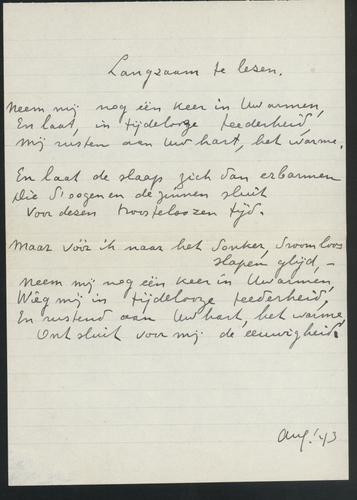 Langzaam te lezen.
Neem mij nog één keer in Uw armen,
En laat, in tijdelooze teederheid,
Mij rusten aan Uw hart, het warme.
En laat de slaap zich dan erbarmen
Die d'oogen en de zinnen sluit
Voor dezen troosteloozen tijd.
Maar vóór ik naar het donker, droomloos
slapen glijd, –
Neem mij nog één keer in Uw armen,
Wieg mij in tijdelooze teederheid,
En rustend aan Uw hart, het warme,
Ontsluit voor mij de eeuwigheid.
Aug. '43